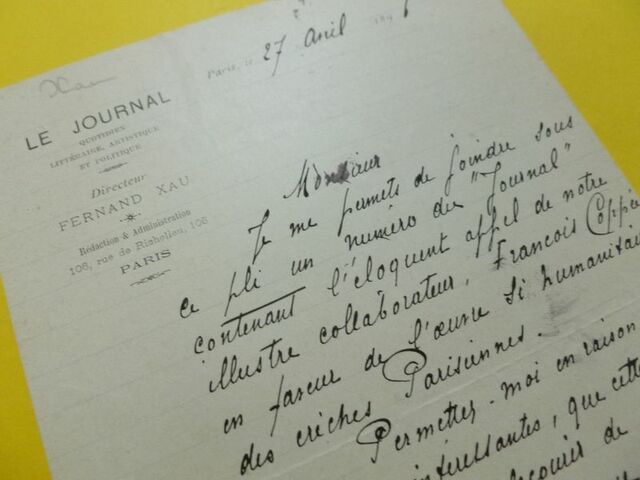 Xau
Paris, le 27 Avril 189
LE JOURNAL
QUOTIDIEN
LITTÉRAIRE, ARTISTIQUE
ET POLITIQUE
Directeur
FERNAND XAU
Rédaction & Administration
106, rue de Richelieu, 106
PARIS
Monsieur
Je me permets de joindre sous
ce pli un numéro du "Journal"
contenant l'éloquent appel de notre
illustre collaborateur, François Coppée
en faveur de l'œuvre si humanitai
des crèches Parisiennes.
Permettez-moi en raison
intéressantes, que cette
de